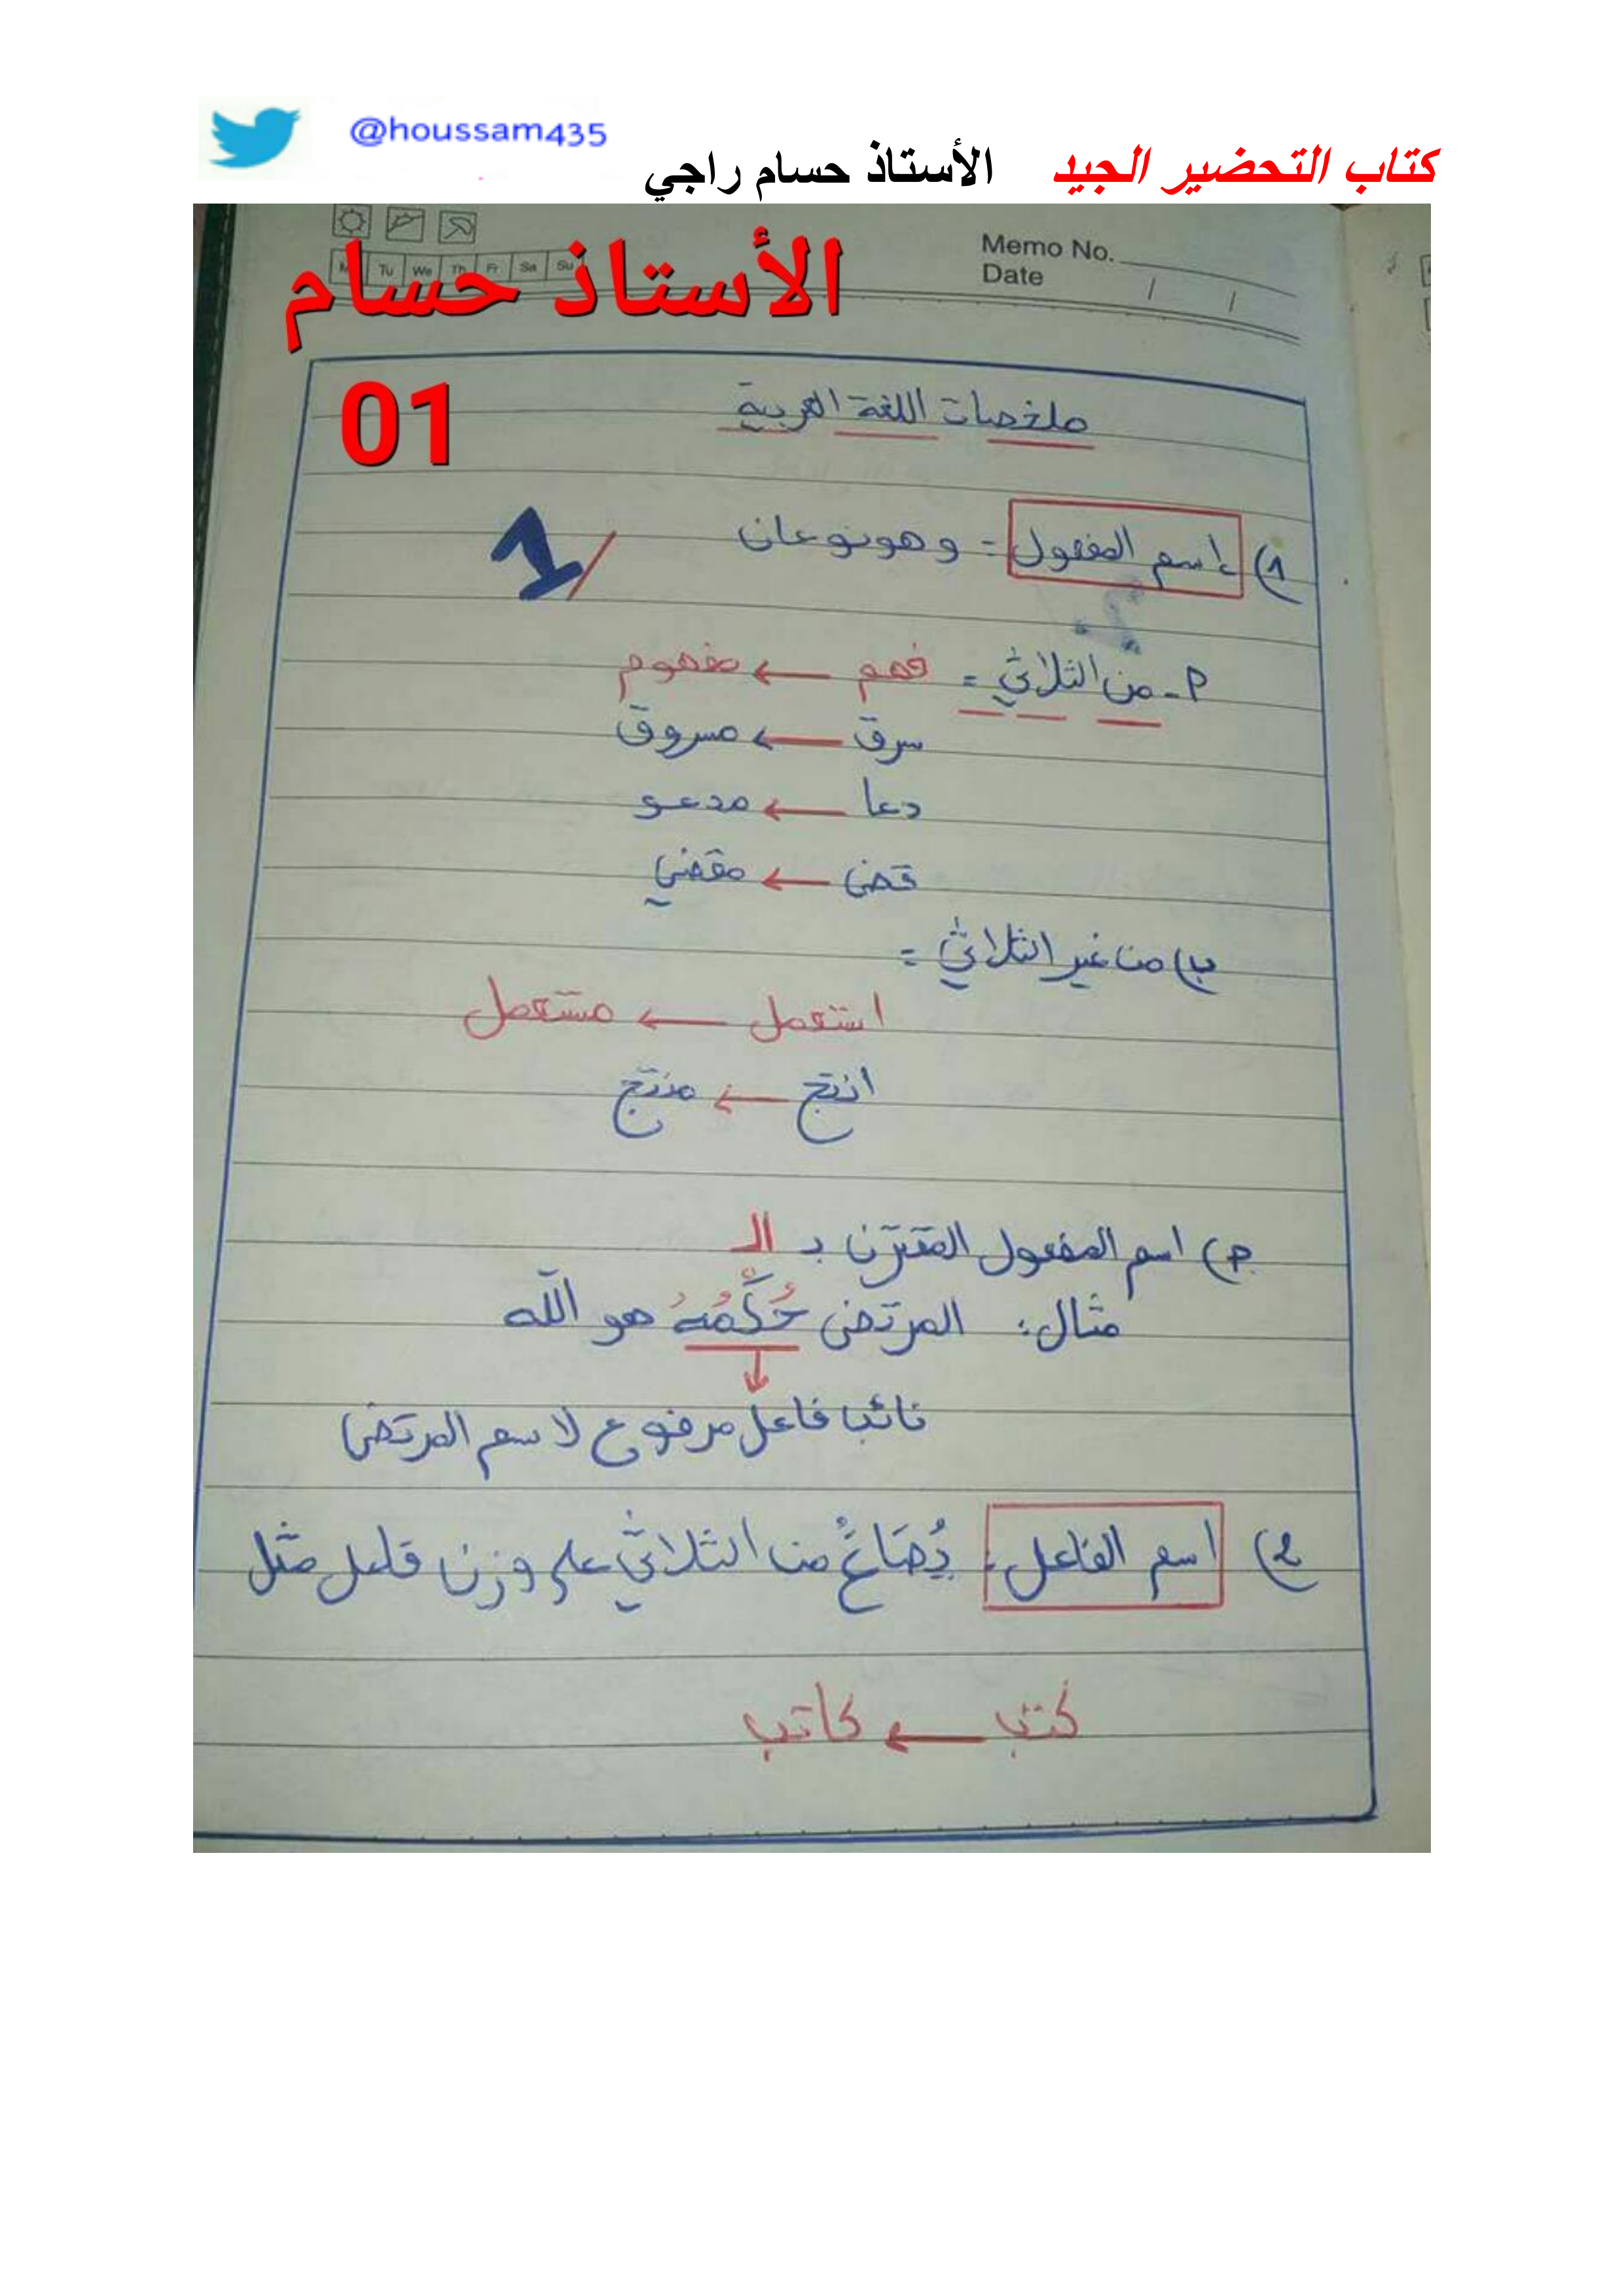 @houssam435
كتاب التحضير الجيد الأستاذ حسام راجي
Memo No.
Date / /
Tu We Th Fr Sa Su
الأستاذ حسام
01
ملخصات اللغة العربية
1) اسم المفعول: وهو نوعان
1/
أ - من الثلاثي: فهم ← مفهوم
سرق ← مسروق
دعا ← مدعو
قضى ← مقضي
ب) من غير الثلاثي:
استعمل ← مستعمل
انتج ← منتج
ج) اسم المفعول المقترن بـ الـ
مثال: المرتضى حُكَّمُهُ هو الله
نائب فاعل مرفوع لاسم المرتضى
2) اسم الفاعل: يُصَاغُ من الثلاثي على وزن فاعل مثل
كتب ← كاتب